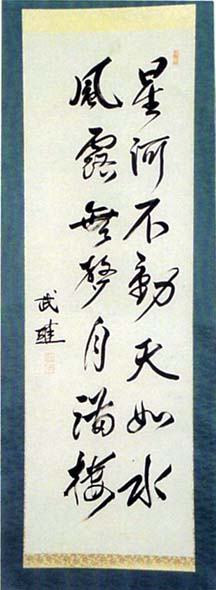 星河不動天如水
風露無聲月満樓
武雄